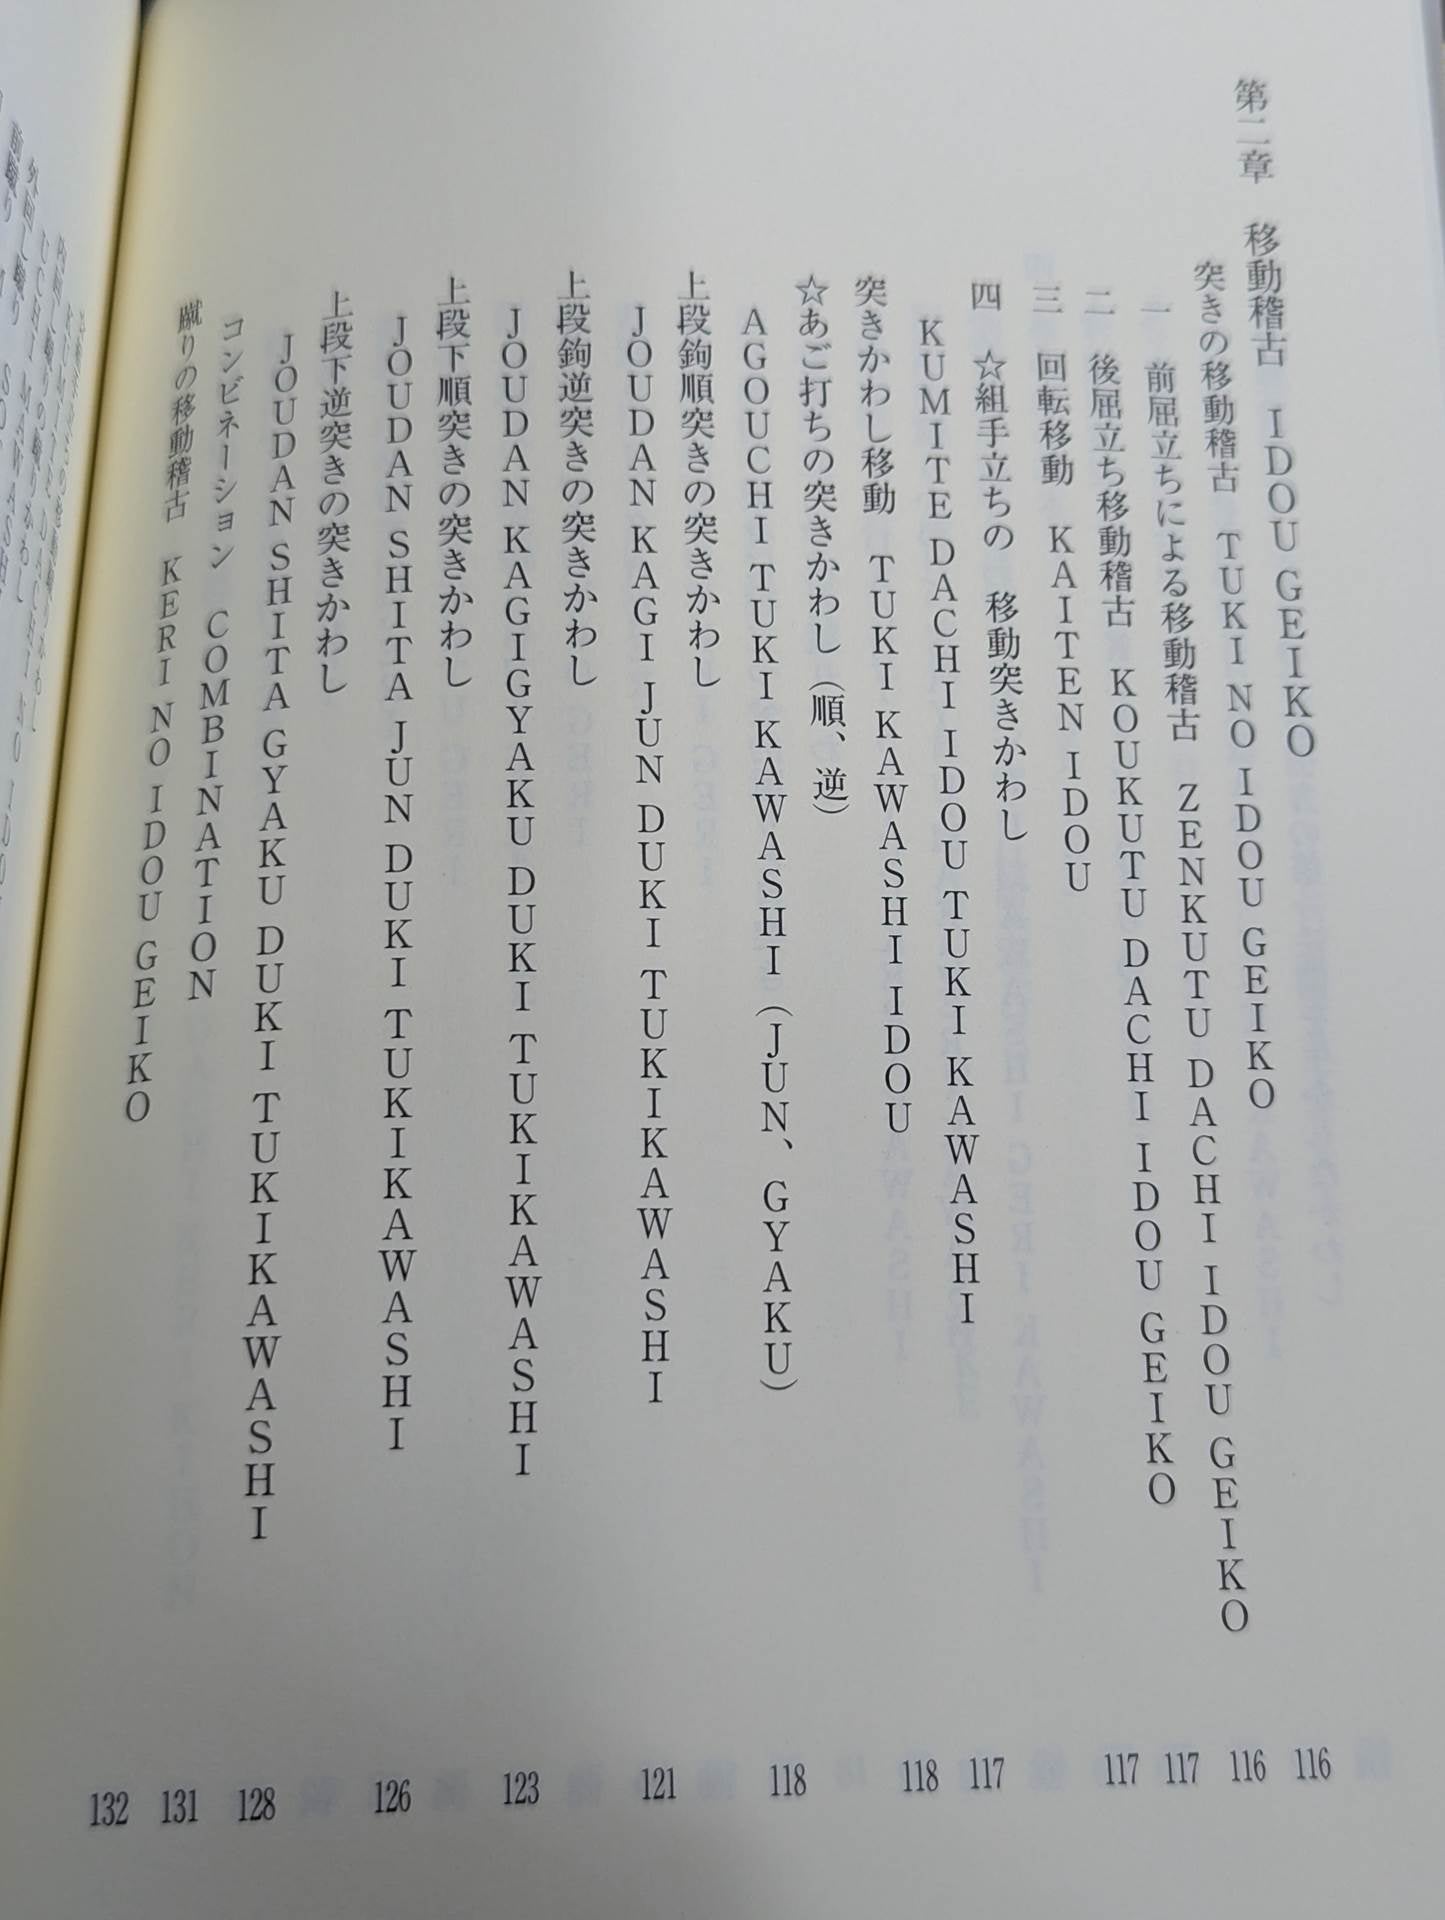 第二章　移動稽古　IDOU GEIKO 116
突きの移動稽古　TUKI NO IDOU GEIKO 116
一　前屈立ちによる移動稽古　ZENKUTU DACHI IDOU GEIKO 117
二　後屈立ち移動稽古　KOUKUTU DACHI IDOU GEIKO 117
三　回転移動　KAITEN IDOU
四　☆組手立ちの　移動突きかわし
KUMITE DACHI IDOU TUKI KAWASHI 117
突きかわし移動　TUKI KAWASHI IDOU 118
☆あご打ちの突きかわし（順、逆）
AGOUCHI TUKI KAWASHI（JUN、GYAKU） 118
上段鉤順突きの突きかわし
JOUDAN KAGI JUN DUKI TUKIKAWASHI 121
上段鉤逆突きの突きかわし
JOUDAN KAGIGYAKU DUKI TUKIKAWASHI 123
上段下順突きの突きかわし
JOUDAN SHITA JUN DUKI TUKIKAWASHI 126
上段下逆突きの突きかわし
JOUDAN SHITA GYAKU DUKI TUKIKAWASHI 128
コンビネーション　COMBINATION 131
蹴りの移動稽古　KERI NO IDOU GEIKO 132